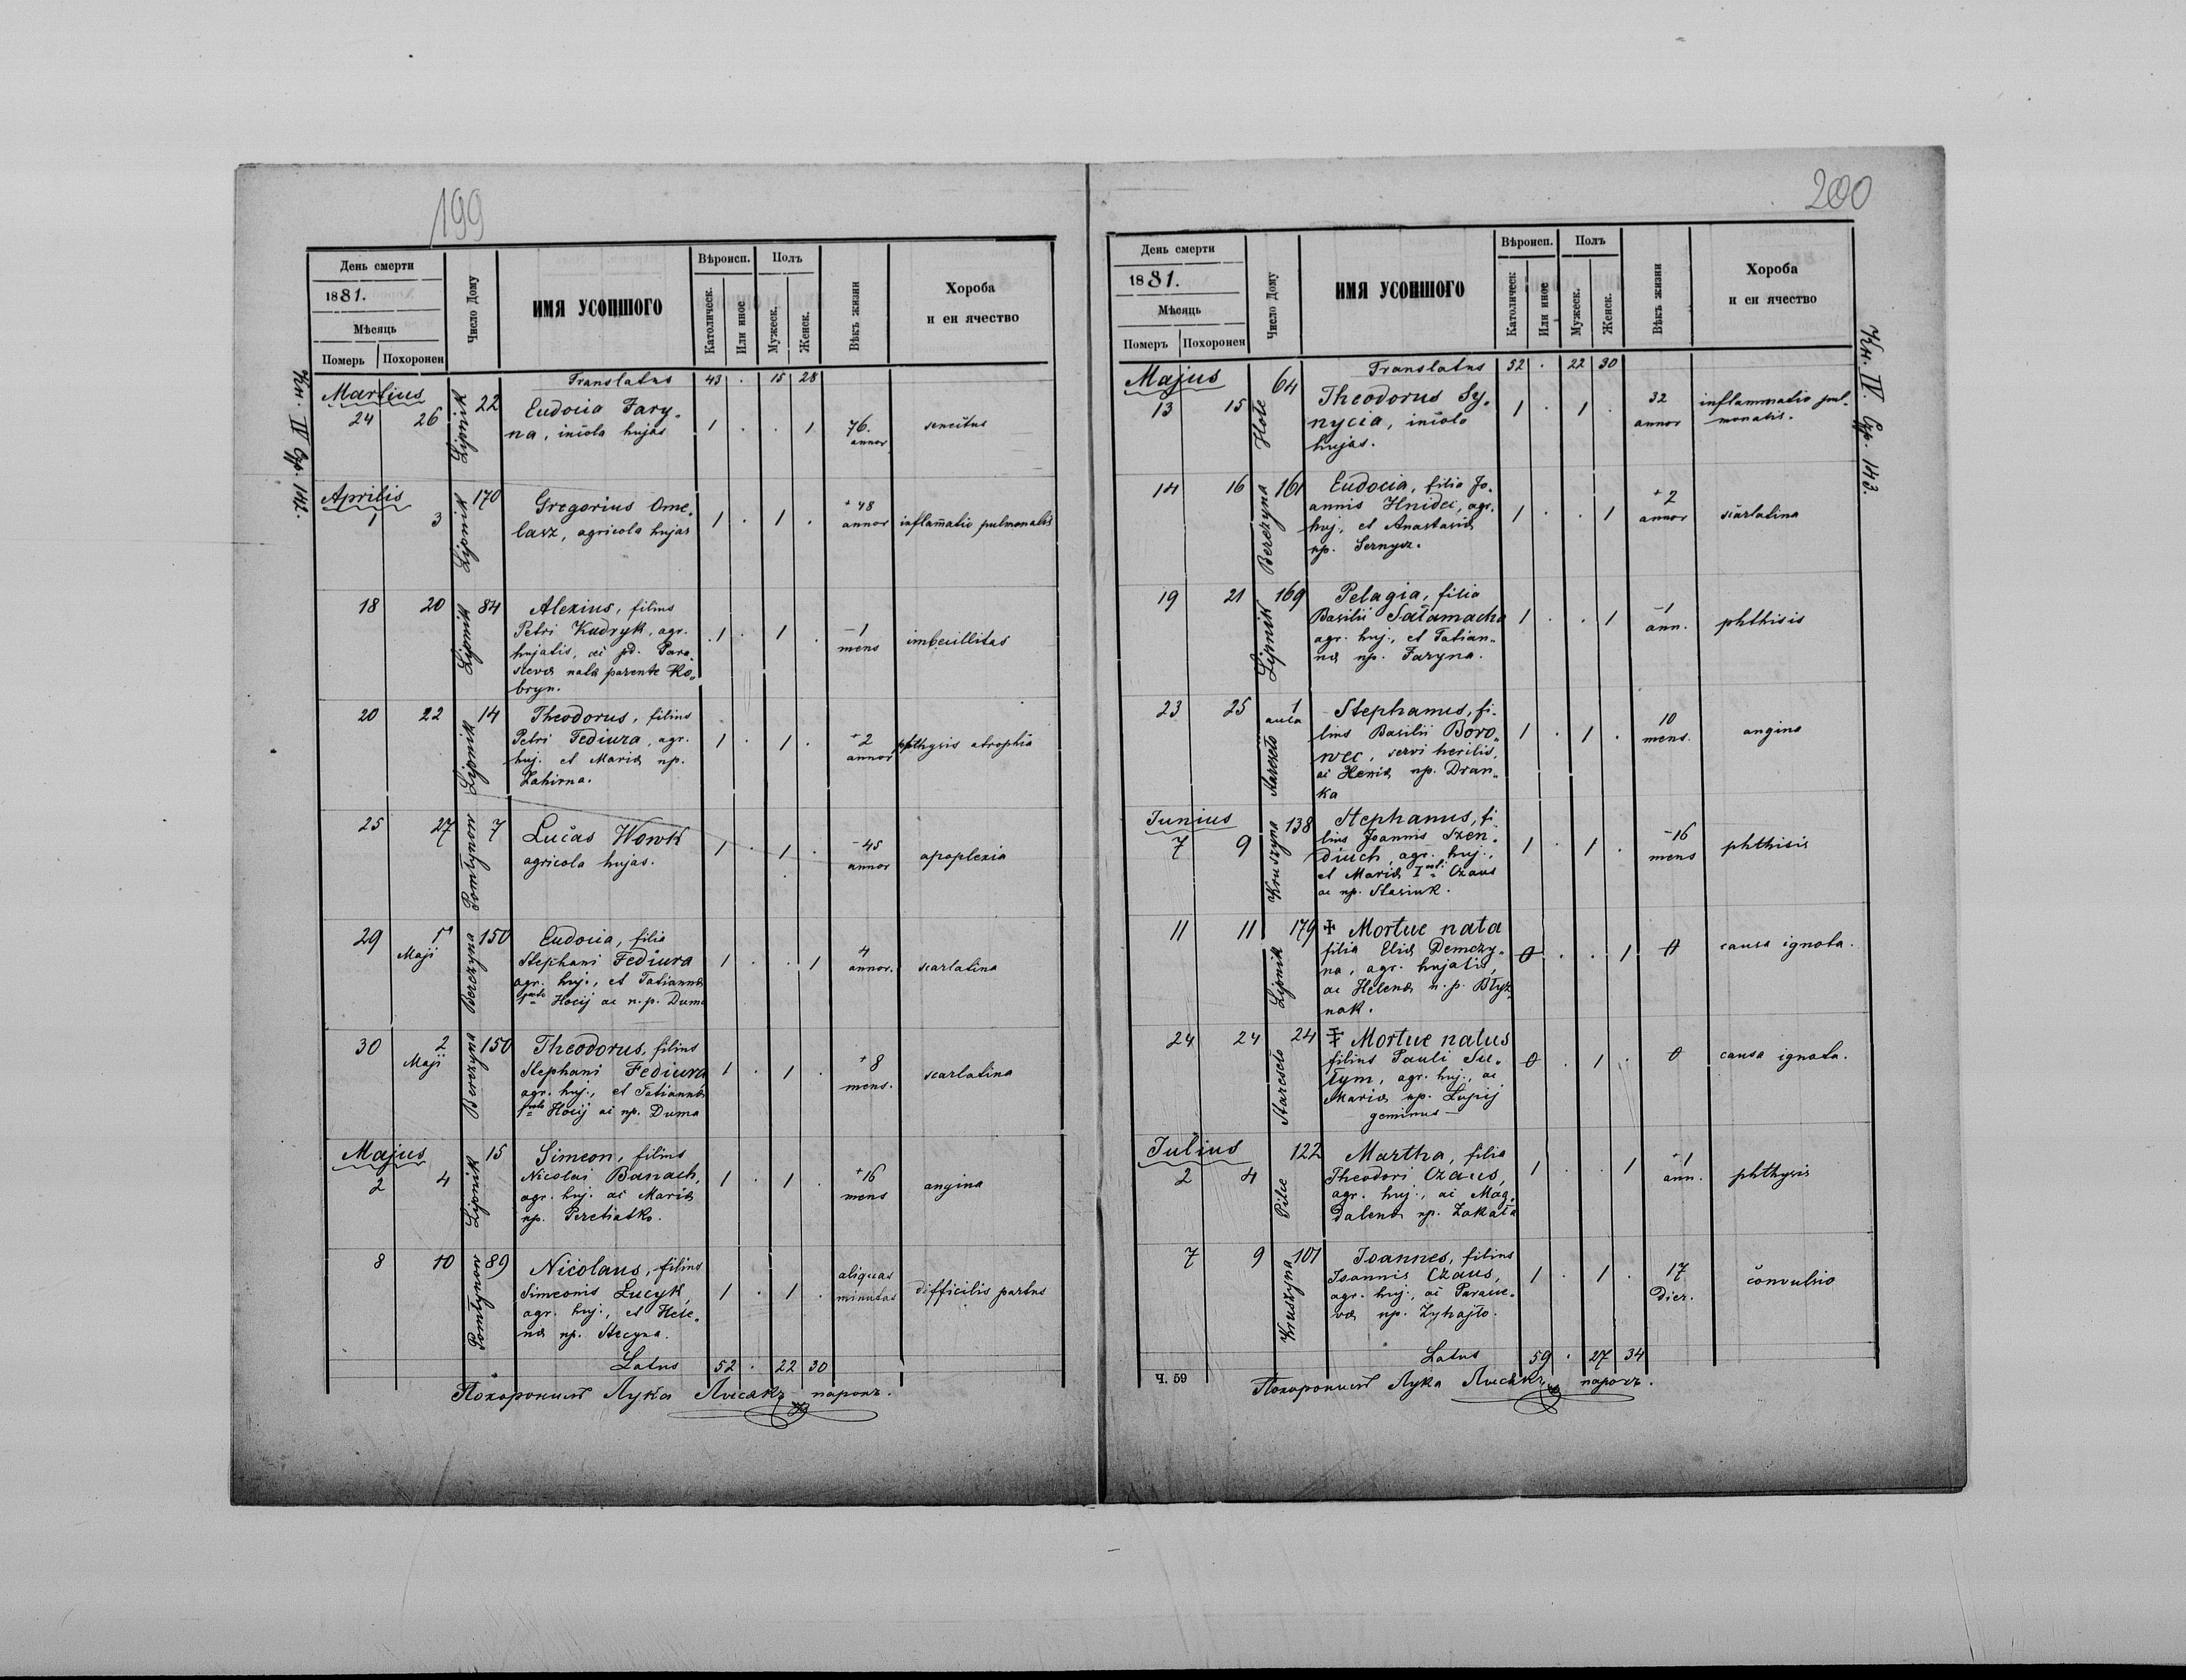 199
День смерти
1881.
Мѣсяць
Померъ Похоронен
Число Дому
ИМЯ УСОПШОГО
Вѣроисп.
Католическ.
Или иное
Полъ
Мужеск.
Женск.
Вѣкъ жизни
Хороба
и еи ячество
Кн. IV Стр. 142.
Translatus 43 . 15 28
Martius
24 26 Lipnik 22 Eudocia Fary-
na, incola hujas 1 . . 1 76. annor senectus
Aprilis
1 3 Lipnik 170 Gregorius Ome-
lasz, agricola hujas 1 . 1 . +48 annor inflam̄atio pulmonalis
18 20 Lipnik 84 Alexius, filius
Petri Kudryk, agr.
hujatis, ac pd. Para-
scevæ nata parente Ko-
bryn. 1 . 1 . —1 mens imbecillitas
20 22 Lipnik 14 Theodorus, filius
Petri Fediura, agr.
huj. et Mariæ np.
Zahirna. 1 . 1 . +2 annor phthysis atrophia
25 27 Pomłynow 7 Lucas Wowk
agricola hujas. 1 . 1 . —45 annor apoplexia
29 1 Maji Berezyna 150 Eudocia, filia
Stephani Fediura
agr. huj., et Tatiannæ
Hocij ac n.p. Duma 1 . . 1 4 annor. scarlatina
30 2 Maji Berezyna 150 Theodorus, filius
Stephani Fediura
agr. huj., et Tatiannæ
Hocij ac np. Duma 1 . 1 . +8 mens. scarlatina
Majus
2 4 Lipnik 15 Simeon, filius
Nicolai Banach,
agr. huj. ac Mariæ
np. Peretiatko. 1 . 1 . +16 mens angina
8 10 Pomłynow 89 Nicolaus, filius
Simeonis Lucyk,
agr. huj., et Hele-
næ np. Stecyna. 1 . 1 . aliquas minutas difficilis partus
Latus 52 . 22 30
Похоронилъ Лука Лисакъ парохъ.
200
День смерти
1881.
Мѣсяць
Померъ Похоронен
Число Дому
ИМЯ УСОПШОГО
Вѣроисп.
Католическ
Или иное
Полъ
Мужеск.
Женск.
Вѣкъ жизни
Хороба
и еи ячество
Кн. IV. Стр. 143.
Translatus 52 . 22 30
Majus
13 15 Hole 64 Theodorus Sy-
nycia, incola
hujas. 1 . 1 . 32 annor inflammatio pul-
monalis.
14 16 Berezyna 161 Eudocia, filia Jo-
annis Hnidec, agr.
huj., et Anastasiæ
np. Sernycz. 1 . . 1 +2 annor scarlatina
19 21 Lipnik 169 Pelagia, filia
Basilii Sałamacha
agr. huj., et Tatian-
næ np. Faryna. 1 . . 1 —1 ann. phthisis
23 25 Stareseło 1 aula Stephanus, fi-
lius Basilii Boro-
wec, servi herilis,
ac Heniæ np. Dran-
ka 1 . 1 . 10 mens. angina
Junius
7 9 Kruszyna 138 Stephanus, fi-
lius Joannis Szen-
diuch, agr. huj.,
et Mariæ Czaus
ac np. Stasiuk. 1 . 1 . —16 mens phthisis
11 11 Lipnik 179 ‡ Mortue nata
filia Eliæ Demczy-
na, agr. hujatis,
ac Helenæ n.p. Błyz-
nak. 0 . . 1 0 causa ignota.
24 24 Stareseło 24 ‡ Mortue natus
filius Pauli Su-
łym, agr. huj., ac
Mariæ np. Lupij
geminus — 0 . 1 . 0 causa ignota.
Julius
2 4 Pilce 122 Martha, filia
Theodori Czaus,
agr. huj., ac Mag-
dalenæ np. Zakała 1 . . 1 +1 ann. phthysis
7 9 Kruszyna 101 Joannes, filius
Joannis Czaus,
agr. huj., ac Parasce-
væ np. Zyhajło. 1 . 1 . 17 dier. convulsio
Latus 59 . 27 34
Ч. 59
Похоронилъ Лука Лисакъ парохъ.